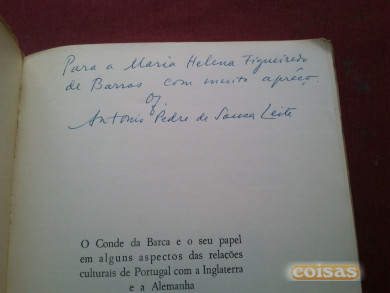 Para a Maria Helena Figueiredo
de Barros com muito aprêço.
Of
António Pedre de Sousa Leite
O Conde da Barca e o seu papel
em alguns aspectos das relações
culturais de Portugal com a Inglaterra
e a Alemanha
coisas